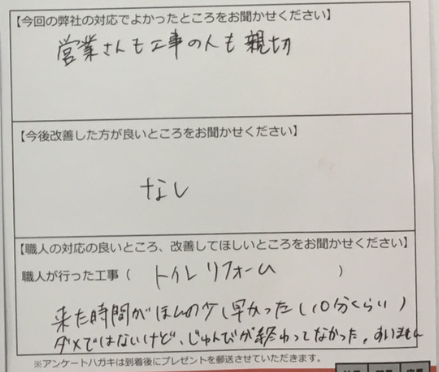 【今回の弊社の対応でよかったところをお聞かせください】
営業さんも工事の人も親切
【今後改善した方が良いところをお聞かせください】
なし
【職人の対応の良いところ、改善してほしいところをお聞かせください】
職人が行った工事（ トイレリフォーム ）
来た時間がほんの少し早かった（10分くらい）
ダメではないけど、じゅんびが終わってなかった。すいません
※アンケートハガキは到着後にプレゼントを郵送させていただきます。